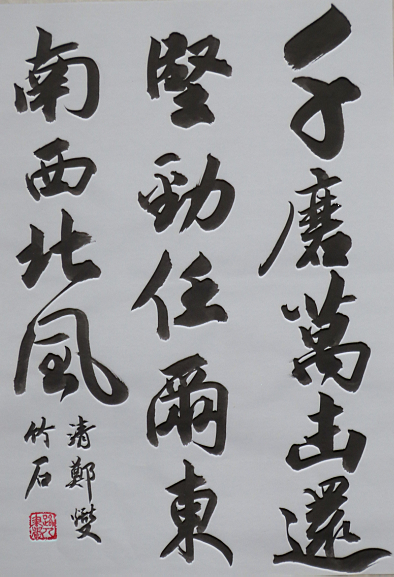 千磨萬击還
堅勁任爾東
南西北風
清鄭燮
竹石